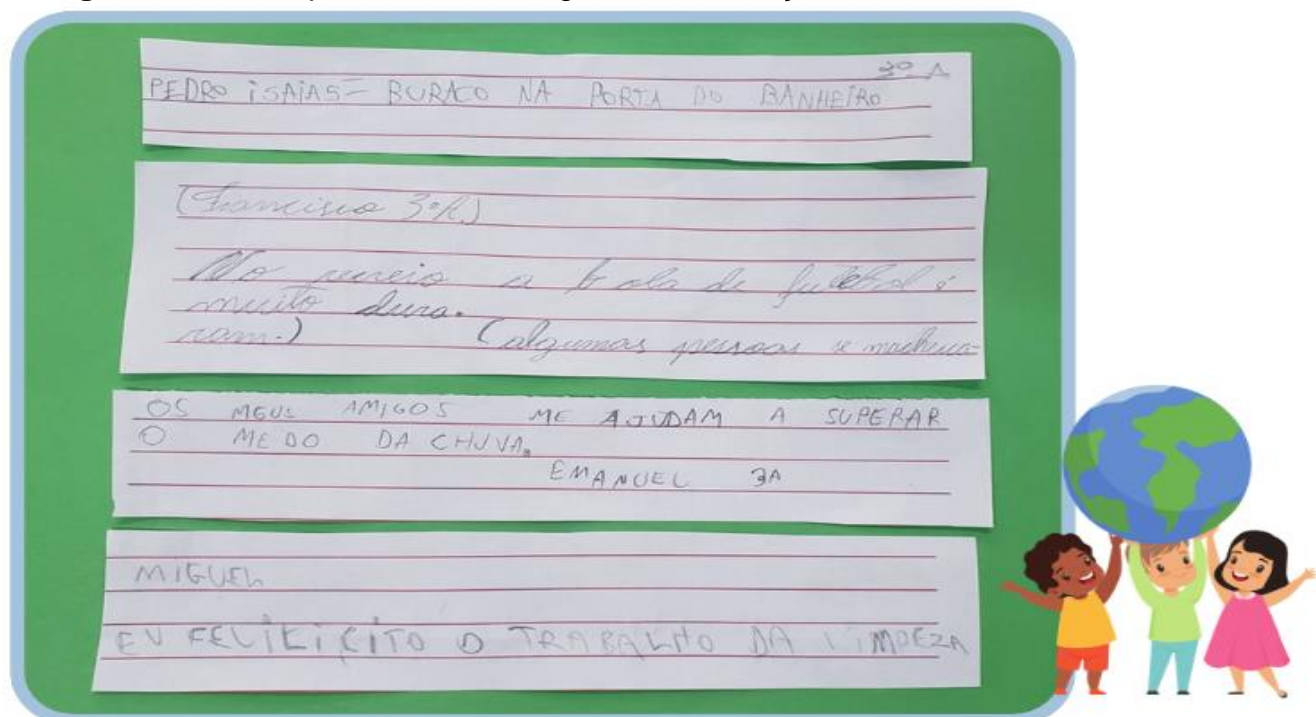 3º A
PEDRO iSAiAS = BURACO NA PORTA DO BANHEiRO
(Francisco 3ºA)
No recreio a bola de futebol é
muito dura.
ram.) (algumas pessoas se machuca-
OS MEUS AMIGOS ME AJUDAM A SUPERAR
O MEDO DA CHUVA.
EMANUEL 3A
MIGUEL
EU FELILICITO O TRABALHO DA LiMPEZA